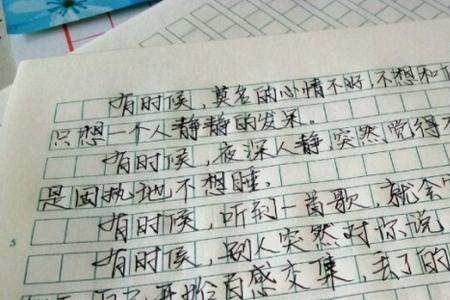 有时候，莫名的心情不好，不想和
只想一个人静静的发呆。
有时候，夜深人静，突然觉得
是固执地不想睡。
有时候，听到一首歌，就会
有时候，别人突然对你说
百感交集，丢了的
5